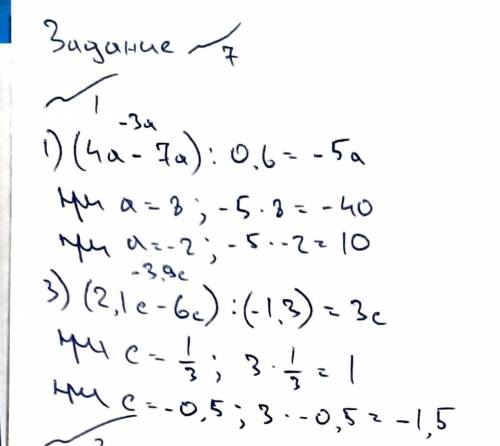 Задание 7
1
-3a
1) (4a - 7a) : 0,6 = -5a
при a = 8 ; -5 · 8 = -40
при a = -2 ; -5 · -2 = 10
-3,9c
3) (2,1c - 6c) : (-1,3) = 3c
при c = 1/3 ; 3 · 1/3 = 1
при c = -0,5 ; 3 · -0,5 = -1,5